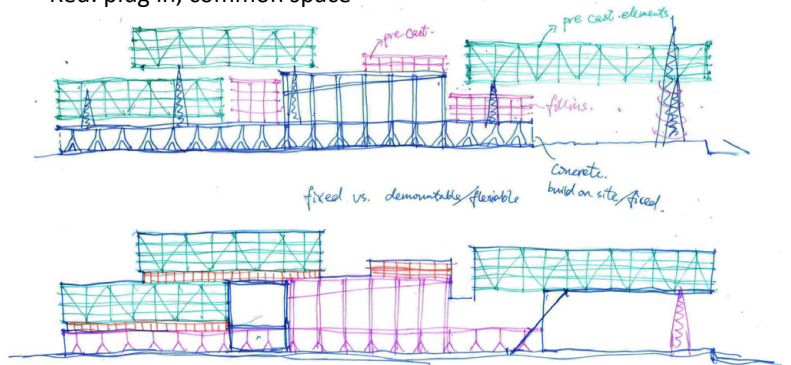 Red: plug in, common space
pre cast.
pre cast elements
fillins.
concrete.
build on site/fixed.
fixed vs. demountable/flexiable